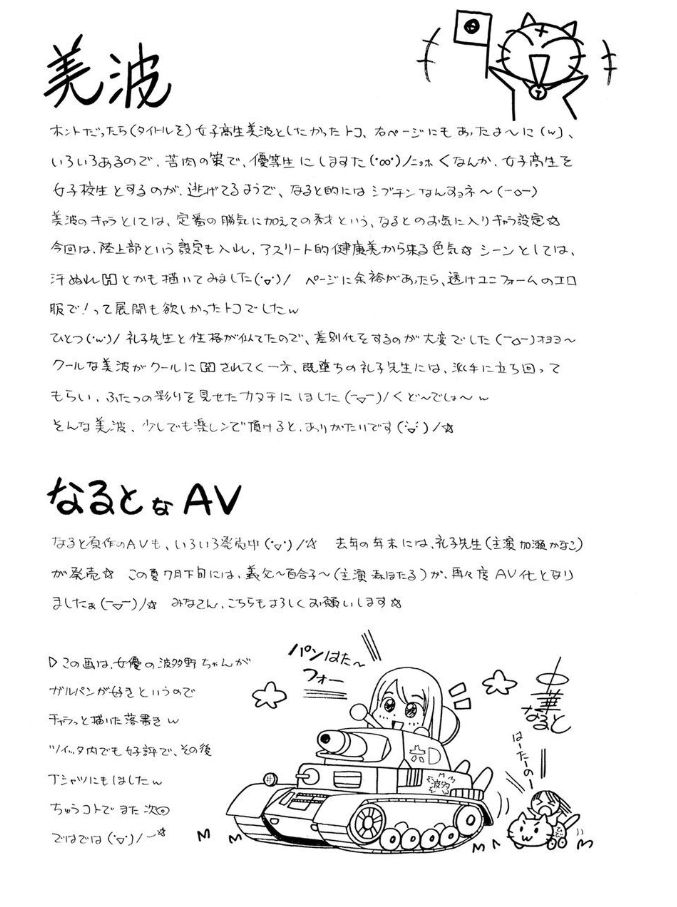 美波
ホントだったら(タイトルを)女子高生美波としたかったトコ、右ページにもあったよーに(w)、
いろいろあるので、苦肉の策で、優等生にしますた(°∞°)/ニッホ くなんか、女子高生を
女子校生とするのが、逃げてるようで、なると的にはシブチンなんすョネ〜(-o-)
美波のキャラとしては、定番の勝気に加えての秀才という、なるとのお気に入りキャラ設定☆
今回は、陸上部という設定も入れ、アスリート的健康美から来る色気☆ シーンとしては、
汗ぬれHとかも描いてみました(°▽°)/ ページに余裕があったら、透けユニフォームのエロ
服で!って展開も欲しかったトコでしたw
ひとつ(°w°)/ 礼子先生と性格が似てたので、差別化をするのが大変でした(-o-)オヨヨ〜
クールな美波がクールに開されてく一方、既堕ちの礼子先生には、派手に立ち回って
もらい、ふたつの彩りを見せたカタチにしました(-▽-)/くど〜でしょ〜w
そんな美波、少しでも楽しンで頂けると、ありがたいです(°▽°)/☆
なるとなAV
なると原作のAVも、いろいろ発売中(°▽°)/☆ 去年の年末には、礼子先生(主演 加瀬かなこ)
が発売☆ この夏7月下旬には、義父〜百合子〜(主演 ほたる)が、再々度AV化となり
ましたぁ(-▽-)/☆ みなさん、こちらもよろしくお願いします☆
▷この画は、女優の波多野ちゃんが
ガルパンが好きというので
チャラっと描いた落書きw
ツイッタ内でも好評で、その後
Tシャツにもしましたw
ちゅうコトでまた次回
ではでは(°▽°)/〜☆
パンはた〜
フォー
波多
華
なると
はーたーのー